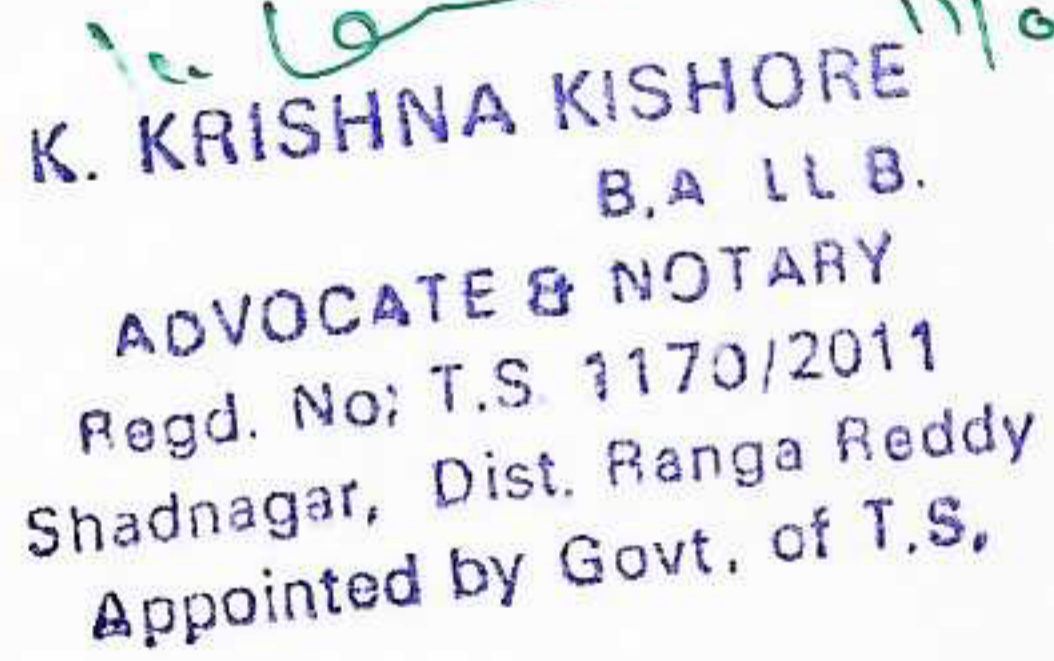 K. KRISHNA KISHORE
B.A LL B.
ADVOCATE & NOTARY
Regd. No; T.S. 1170/2011
Shadnagar, Dist. Ranga Reddy
Appointed by Govt. of T.S.